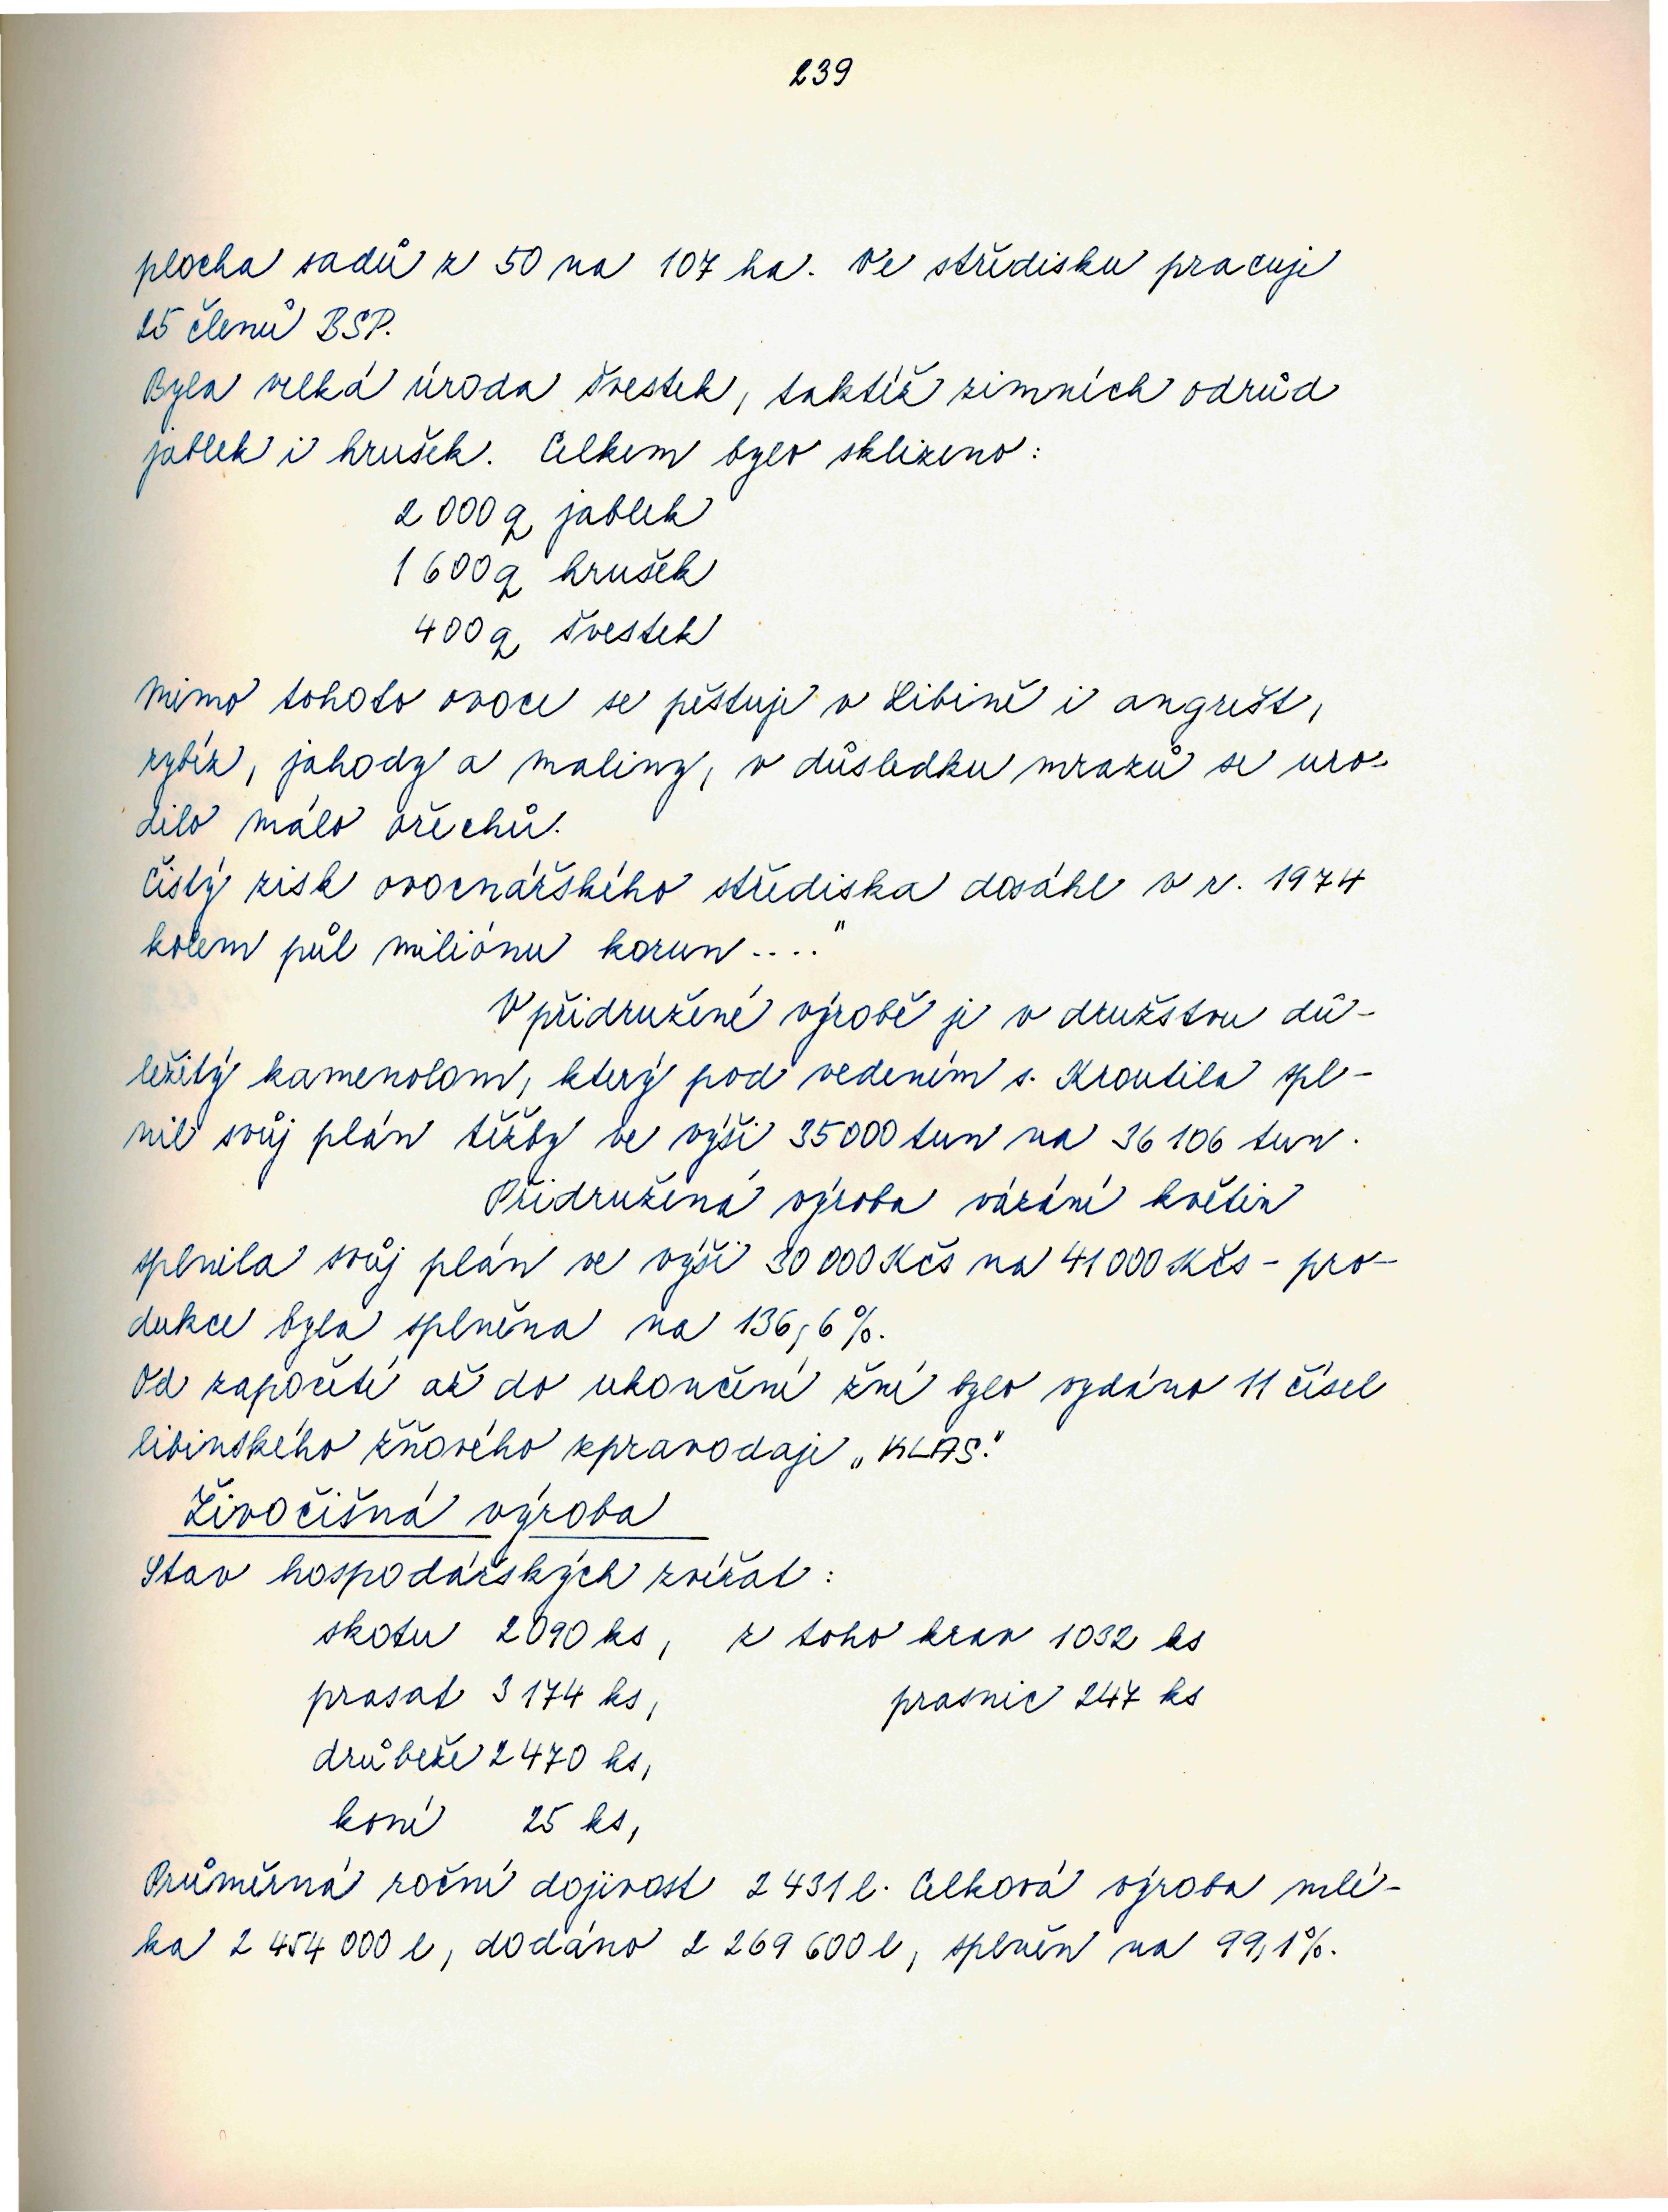 239
plocha sadů z 50 na 107 ha. Ve středisku pracuje
25 členů BSP.
Byla velká úroda švestek, taktéž zimních odrůd
jablek i hrušek. Celkem bylo sklizeno:
2 000 q jablek
1 600 q hrušek
400 q švestek
Mimo tohoto ovoce se pěstuje v Libině i angrešt,
rybíz, jahody a maliny, v důsledku mrazů se uro-
dilo málo ořechů.
Čistý zisk ovocnářského střediska dosáhl v r. 1974
kolem půl miliónu korun...."
V přidružené výrobě je v družstvu dů-
ležitý kamenolom, který pod vedením s. Kroutila spl-
nil svůj plán těžby ve výši 35 000 tun na 36 106 tun.
Přidružená výroba vázání květin
splnila svůj plán ve výši 30 000 Kčs na 41 000 Kčs - pro-
dukce byla splněna na 136,6 %.
Od započetí až do ukončení žní bylo vydáno 11 čísel
libinského žňového zpravodaje „KLAS."
Živočišná výroba
Stav hospodářských zvířat:
skotu 2 090 ks, z toho krav 1032 ks
prasat 3 174 ks, prasnic 247 ks
drůbeže 2 470 ks,
koní 25 ks,
Průměrná roční dojivost 2 431 l. Celková výroba mlé-
ka 2 454 000 l, dodáno 2 269 600 l, splněn na 99,1%.